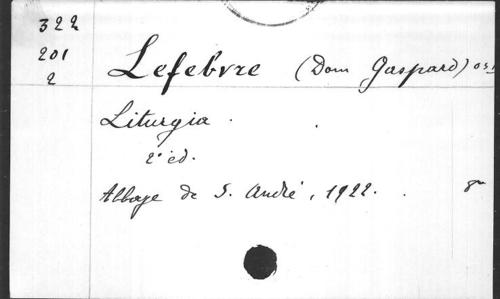 322
201
2
Lefebvre (Dom Gaspard) osb
Liturgia.
2e ed.
Abbaye de S. André, 1922. 8°